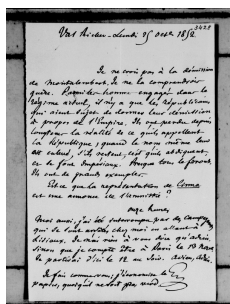 Val Richer – Lundi 25 Octobre 1852
2428
Je ne crois pas à la démission
de Montalembert. Je ne la comprendrais
guère. Personne engagé dans le
régime actuel, il n'y a que les républicains
qui aient sujet de donner leur démission
à propos de l'Empire. Ils ont perdu depuis
longtemps la réalité de ce qu'ils appellent
la République; quand le nom même leur
est enlevé, s'ils restent, c'est qu'ils
se font Impériaux. Presque tous le feront.
Ils ont de grands exemples.
Est-ce que la représentation de Cinna
est une annonce de l'amnistie ?
onze heures
moi aussi, j'ai été interrompu par des
qui se sont chez moi en allant à
Lisieux. Je n'ai rien à vous dire qu'adieu,
sinon que je compte être à Paris le 13 nov.
Je partirai d'ici le 12 au soir. Adieu, adieu.
Je fais comme vous, j'économise le
papier, quoiqu'il ne soit pas